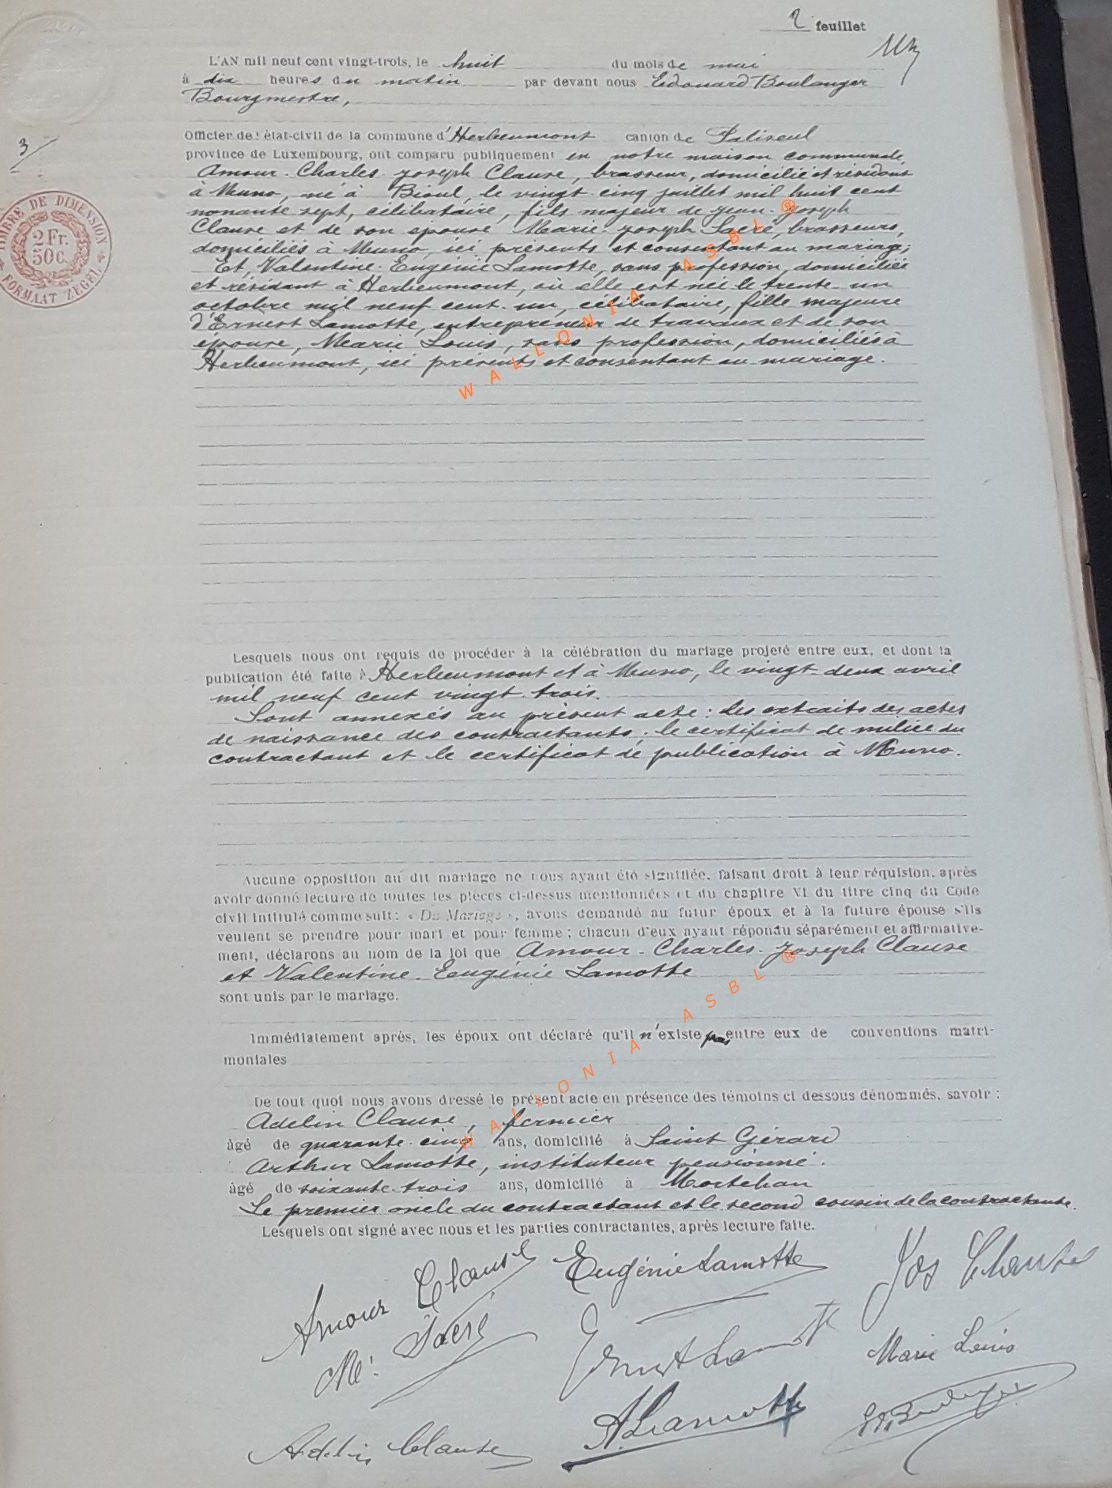 2 feuillet
L'AN mil neuf cent vingt-trois, le huit du mois de mai
à dix heures du matin par devant nous Edouard Boulanger
Bourgmestre,
Officier de l'état-civil de la commune d'Herbeumont canton de Paliseul
3
province de Luxembourg, ont comparu publiquement en notre maison communale,
Amour-Charles-Joseph Clause, brasseur, domicilié et résidant
à Muno, né à Bioul, le vingt cinq juillet mil huit cent
nonante sept, célibataire, fils majeur de Jean-Joseph
Clause et de son épouse Marie-Joseph Sacré, brasseurs,
domiciliés à Muno, ici présents et consentant au mariage;
Et, Valentine-Eugénie Lamotte, sans profession, domiciliée
et résidant à Herbeumont, où elle est née le trente-un
octobre mil neuf cent-un, célibataire, fille majeure
d'Ernest Lamotte, entrepreneur de travaux et de son
épouse, Marie Louis, sans profession, domiciliés à
Herbeumont, ici présents et consentant au mariage.
TIMBRE DE DIMENSION
2 Fr.
50c.
FORMAAT ZEGEL
WALLONIA ASBL ®
Lesquels nous ont requis de procéder à la célébration du mariage projeté entre eux, et dont la
publication été faite à Herbeumont et à Muno, le vingt-deux avril
mil neuf cent vingt-trois.
Sont annexés au présent acte: les extraits des actes
de naissance des contractants; le certificat de milice du
contractant et le certificat de publication à Muno.
Aucune opposition au dit mariage ne nous ayant été signifiée, faisant droit à leur réquision, après
avoir donné lecture de toutes les pièces ci-dessus mentionnées et du chapitre VI du titre cinq du Code
civil intitulé comme suit: « Du Mariage », avons demandé au futur époux et à la future épouse s'ils
veulent se prendre pour mari et pour femme; chacun d'eux ayant répondu séparément et affirmative-
ment, déclarons au nom de la loi que Amour-Charles-Joseph Clause
et Valentine-Eugénie Lamotte
sont unis par le mariage.
WALLONIA ASBL ®
Immédiatement après, les époux ont déclaré qu'il n'existe pas entre eux de conventions matri-
moniales
De tout quoi nous avons dressé le présent acte en présence des témoins ci dessous dénommés, savoir:
Adelin Clause, fermier
âgé de quarante-cinq ans, domicilié à Saint Gérard
Arthur Lamotte, instituteur pensionné.
âgé de soixante-trois ans, domicilié à Mortehan
Le premier oncle du contractant et le second cousin de la contractante.
Lesquels ont signé avec nous et les parties contractantes, après lecture faite.
Amour Clause Eugénie Lamotte Jos Clause
M. Sacré Ernest Lamotte Marie Louis
Adelin Clause A. Lamotte Ed. Boulanger